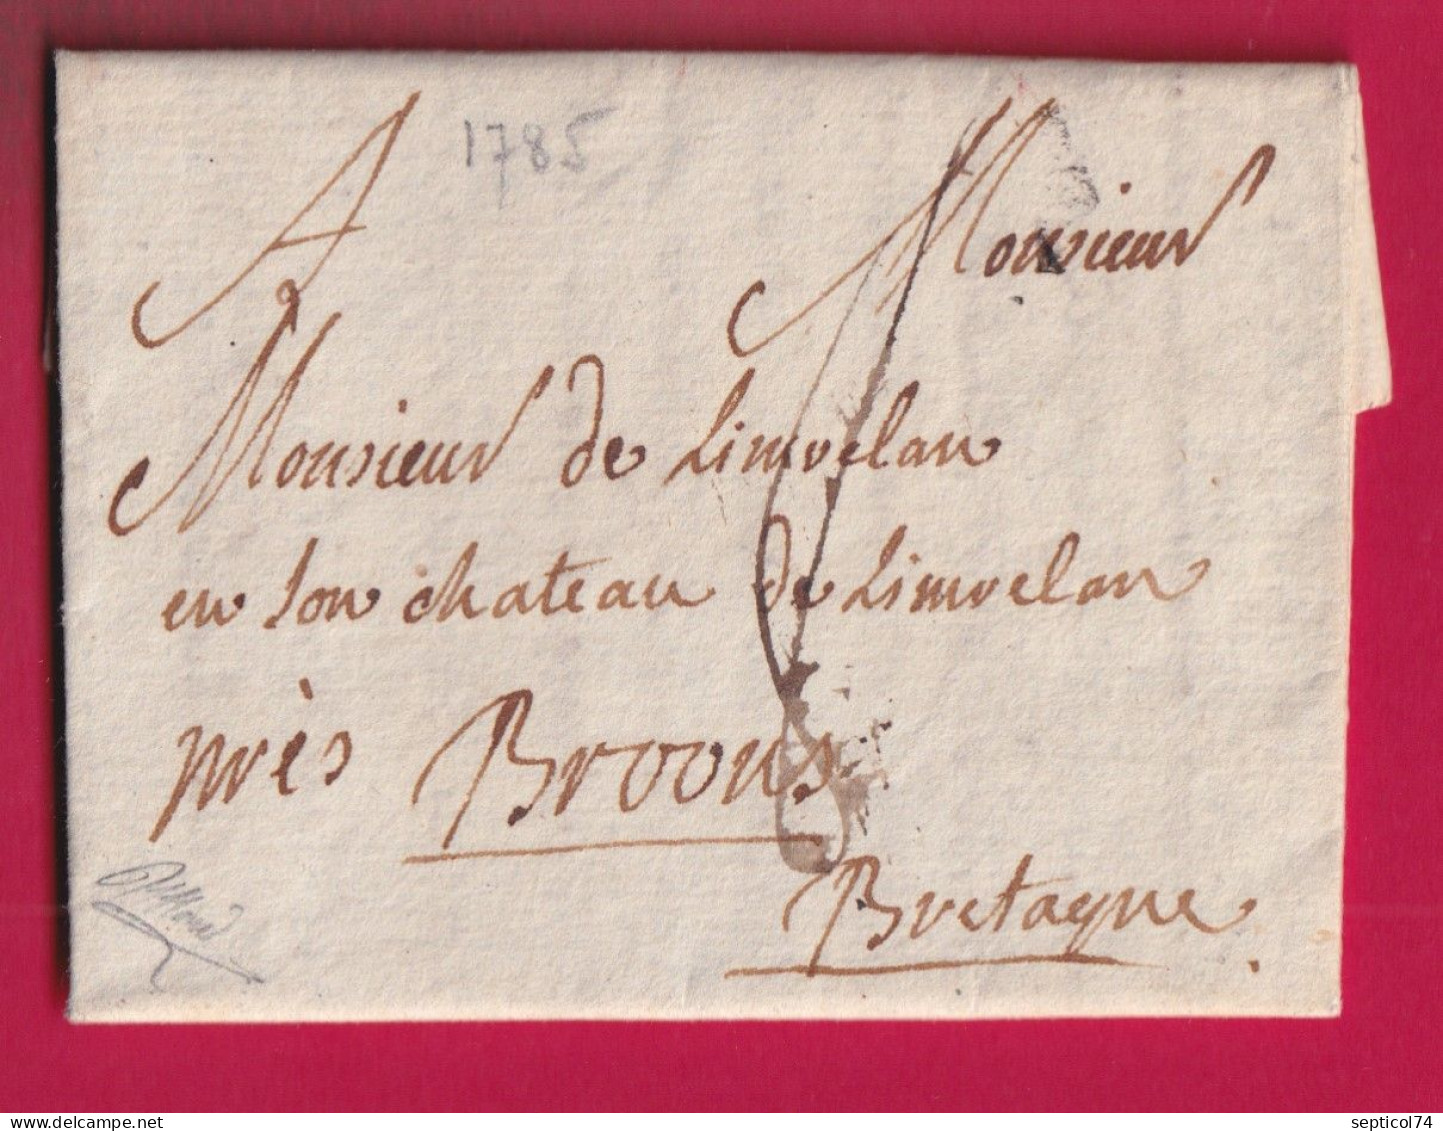 1785
A Monsieur
Monsieur de Limoelan
en son chateau de Limoelan
près Broons
Bretagne
delcampe.net
septicol74